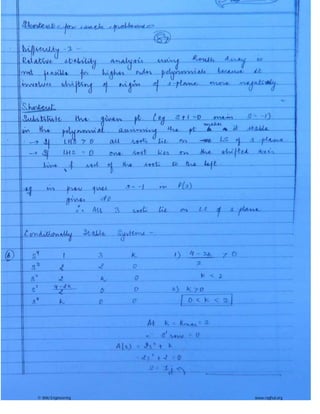 Shortcut for such problems :-
Difficulty - 2 -
Relative stability analysis using Routh Array is
not feasible for higher order polynomials because it
involves shifting of origin of s-plane more negatively.
Shortcut
Substitute the given pt (eg s+1=0 means s=-1)
in the polynomial assuming the pt makes it stable
→ If LHS > 0 all roots lie on LS of s plane
→ If LHS = 0 one root lies on the shifted axis
line & rest of the roots to the left
eg in prev ques s=-1 in P(s)
gives
∴ All 3 roots lie on of s plane
Conditionally Stable Systems :-
S⁴ 1 3 K 1) 4-2K / 2 > 0
S³ 2 2 0
S² 2 K 0 K < 2
S¹ 4-2K / 2 0 2) K > 0
S⁰ K 0 0 0 < K < 2
At K = Kmax = 2
S¹ row = 0
A(s) = 2s² + K
2s² + 2 = 0
S = ± j
© Wiki Engineering
www.raghul.org